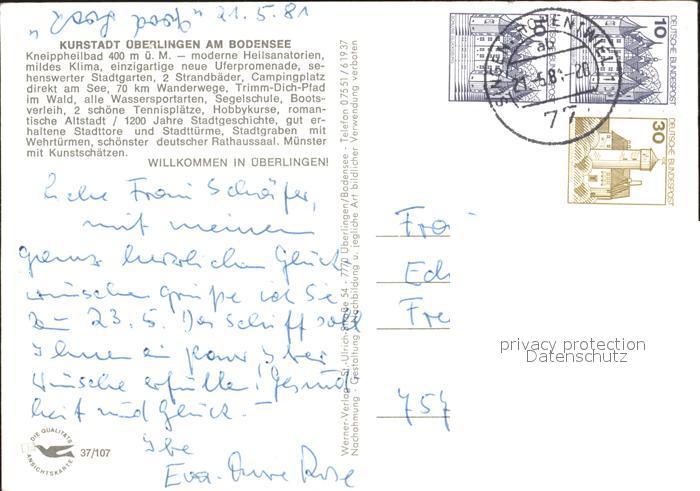 21.5.81
KURSTADT ÜBERLINGEN AM BODENSEE
Kneippheilbad 400 m ü. M. — moderne Heilsanatorien,
mildes Klima, einzigartige neue Uferpromenade, se-
henswerter Stadtgarten, 2 Strandbäder, Campingplatz
direkt am See, 70 km Wanderwege, Trimm-Dich-Pfad
im Wald, alle Wassersportarten, Segelschule, Boots-
verleih, 2 schöne Tennisplätze, Hobbykurse, roman-
tische Altstadt / 1200 Jahre Stadtgeschichte, gut er-
haltene Stadttore und Stadttürme, Stadtgraben mit
Wehrtürmen, schönster deutscher Rathaussaal. Münster
mit Kunstschätzen.
WILLKOMMEN IN ÜBERLINGEN!
Liebe Frau Schäfer,
mit meinen
ganz herzlichen Glück
wünschen grüße ich Sie
zum 23.5. Das Schiff soll
Ihnen ein paar Ihrer
Wünsche erfüllen! Gesund
heit und Glück. —
Ihre
Eva-Marie Rose
DIE QUALITÄTS
ANSICHTSKARTE
37/107
Werner-Verlag - St.-Ulrich-Straße 54 - 7770 Überlingen/Bodensee - Telefon 07551/61937
Nachahmung - Gestaltung, Nachbildung u. jegliche Art bildlicher Verwendung verboten
SINGEN (HOHENTWIEL) 1
ab
21.-5.81-20
77
10
DEUTSCHE BUNDESPOST
30
DEUTSCHE BUNDESPOST
Fra
Ed
Fre
757
privacy protection
Datenschutz